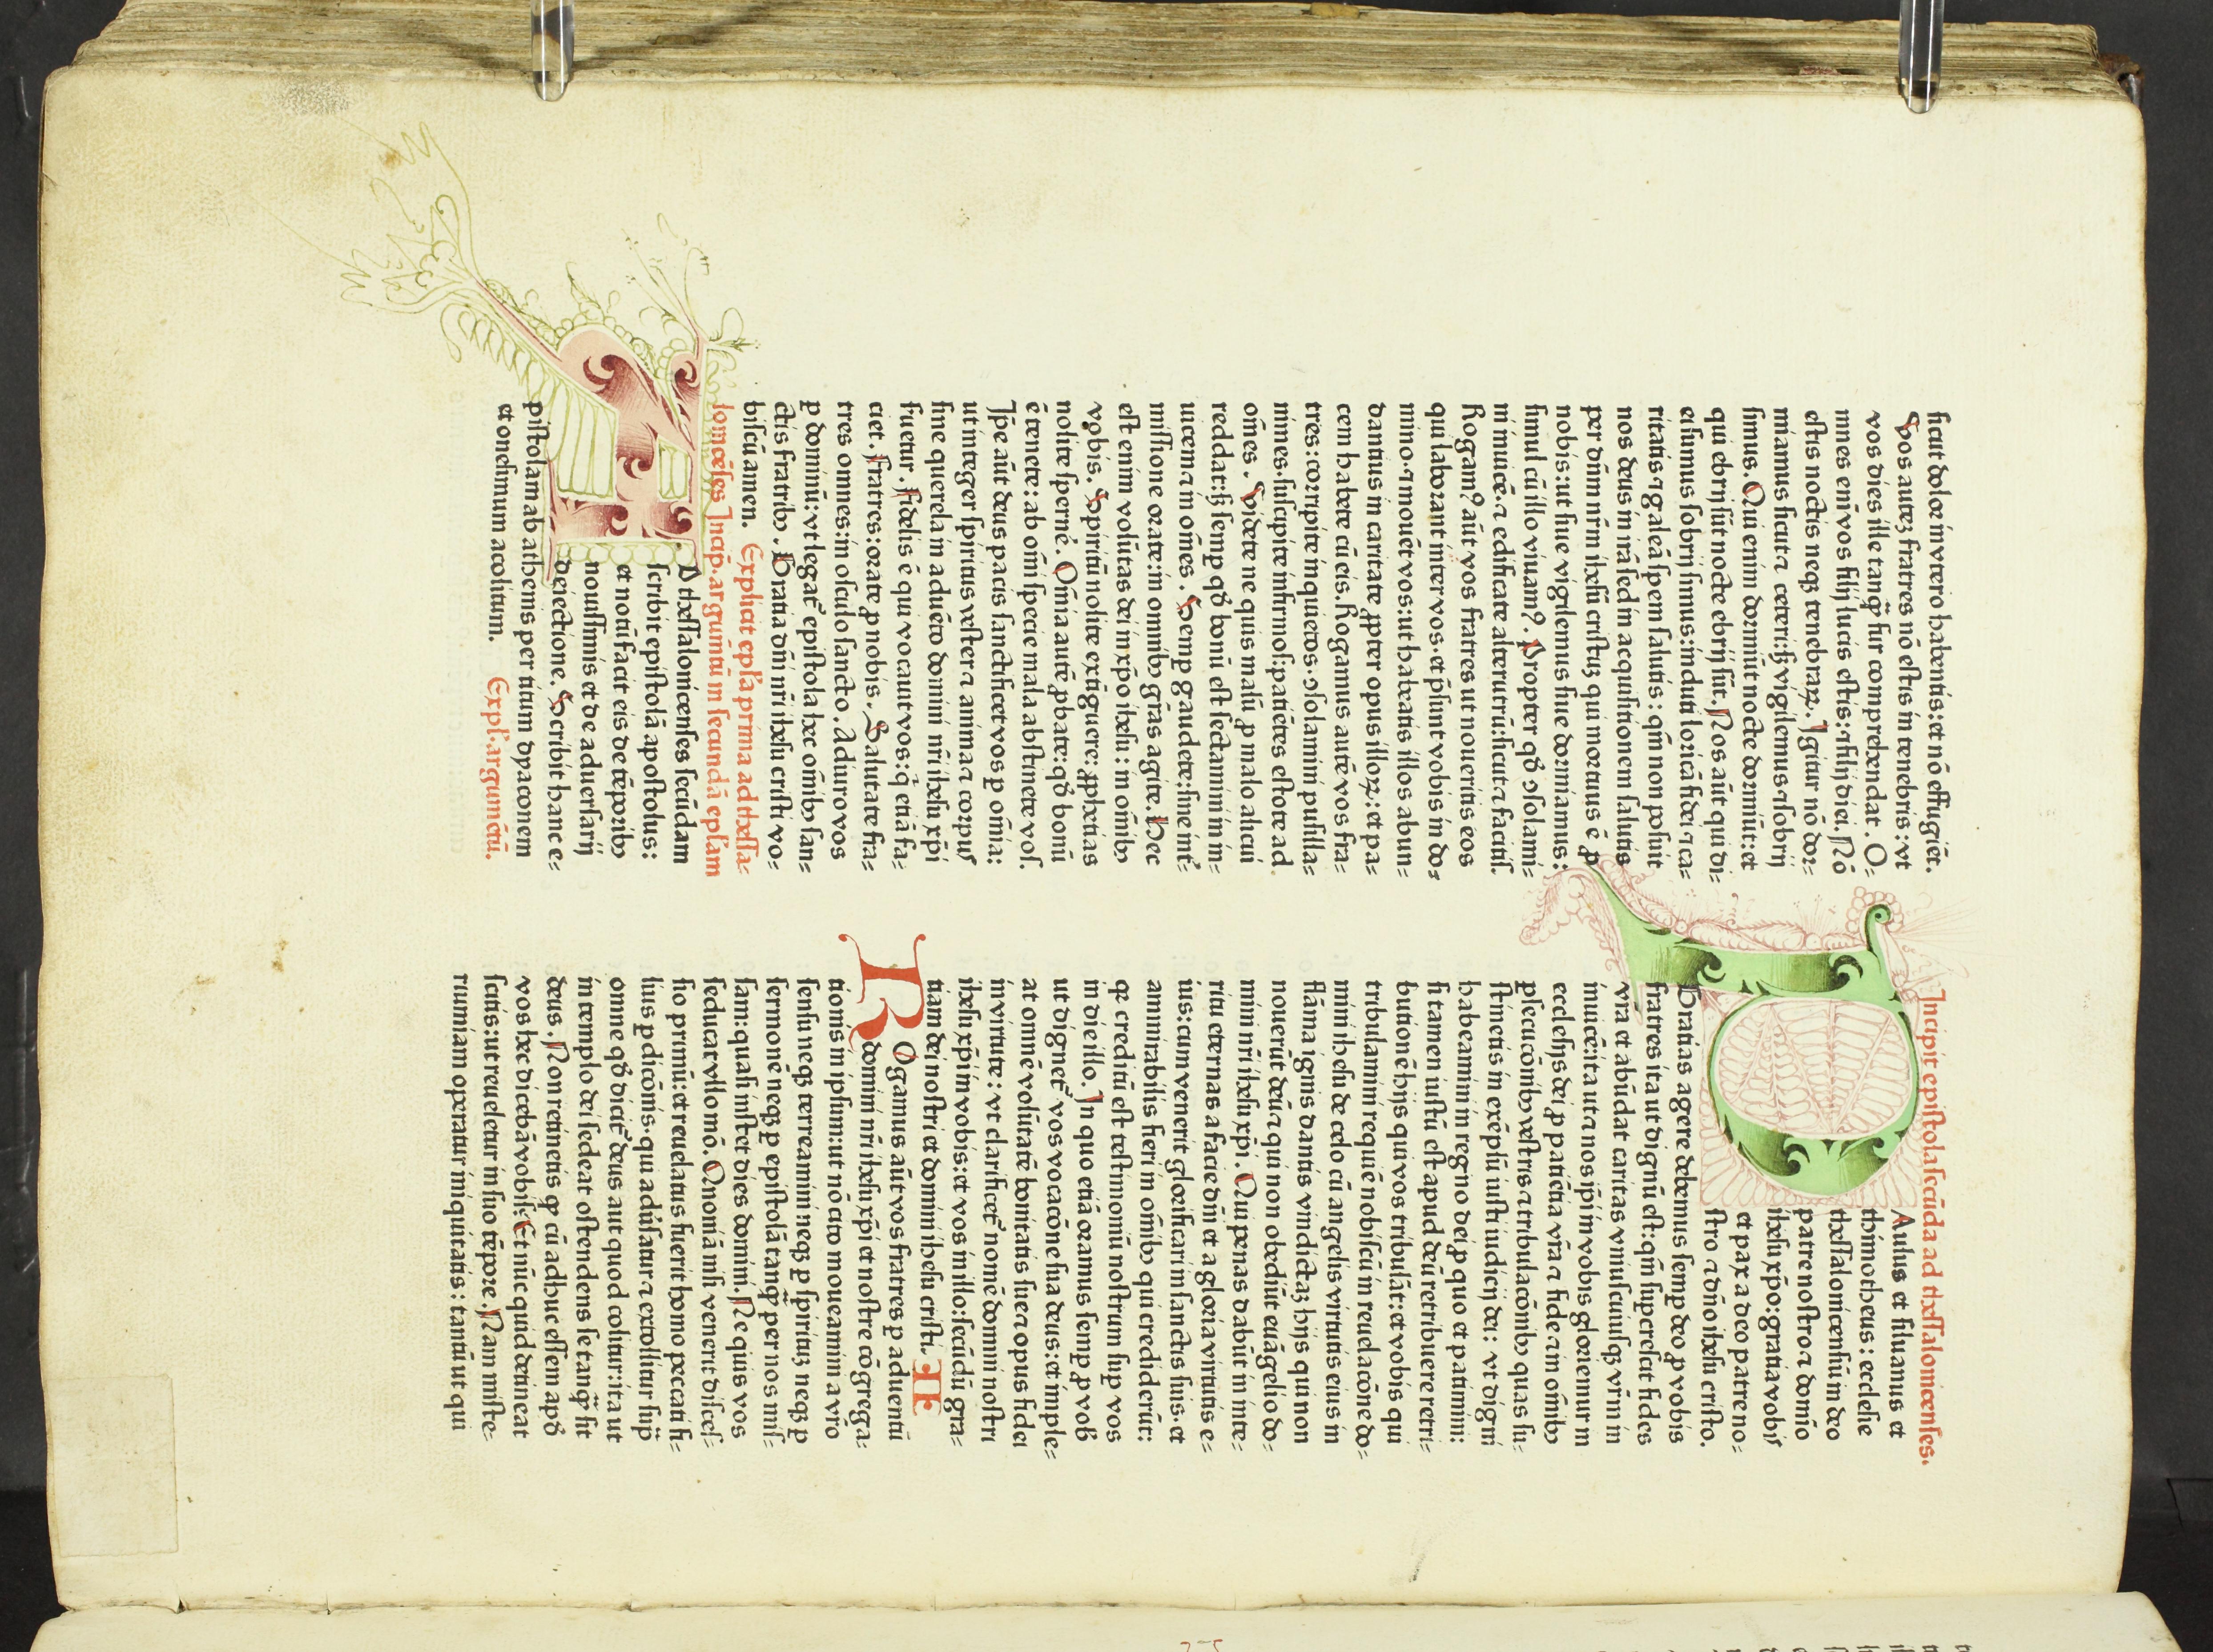 sicut dolor in vtero habentis: et nō effugiēt.
Vos autez fratres nō estis in tenebris: vt
vos dies ille tanq̄ fur comprehendat. O-
mnes em̄ vos filij lucis estis: ⁊ filij diei. Nō
estis noctis neqꝫ tenebraꝝ. Igitur nō dor-
miamus sicut ⁊ ceteri: sꝫ vigilemus ⁊ sobrij
simus. Qui enim dormiūt nocte dormiūt: et
qui ebrij sūt nocte ebrij sūt. Nos aūt qui di-
ei sumus sobrij simus: induti loricā fidei ⁊ ca-
ritatis ⁊ galeā spem salutis: qm̄ non posuit
nos deus in irā sed in acquisitionem salutis
per dn̄m nr̄m ihesū cristuꝫ qui mortuus ē ꝓ
nobis: ut siue vigilemus siue dormiamus:
simul cū illo viuam?. Propter qd̄ ꝯsolami-
ni inuicē. ⁊ edificate alterutrū: sicut ⁊ facitis.
Rogam? aūt vos fratres ut noueritis eos
qui laborant inter vos. et p̄sunt vobis in do-
mino. ⁊ mouēt vos: ut habeatis illos abun-
dantius in caritate ꝓpter opus illoꝝ: et pa-
cem habete cū eis. Rogamus autē vos fra-
tres: corripite inquietos. ꝯsolamini pusilla-
nimes. suscipite infirmos: patiētes estote ad
om̄es. Videte ne quis malū ꝓ malo alicui
reddat: sꝫ semꝑ qd̄ bonū est sectamini in in-
uicem ⁊ in om̄es. Semꝑ gaudete: sine int̄-
missione orate: in omnibꝰ grās agite. Hec
est enim volūtas dei in xp̄o ihesu: in om̄ibꝰ
vobis. Spiritū nolite extīguere: ꝓphetias
nolite spernē. Om̄ia autē ꝓbate: qd̄ bonū
ē tenete: ab om̄i specie mala abstinete vos.
Ip̄e aūt deus pacis sanctificet vos ꝑ om̄ia:
ut integer spiritus vester ⁊ anima ⁊ corpus
sine querela in aduētu domini nr̄i ihesu xp̄i
seruetur. Fidelis ē qui vocauit vos: q̄ etiā fa-
ciet. Fratres: orate ꝓ nobis. Salutate fra-
tres omnes: in osculo sancto. Adiuro vos
ꝑ dominū: vt legat᷑ epistola hec om̄ibꝰ san-
ctis fratribꝰ. Gratia dn̄i nr̄i ihesu cristi vo-
biscū amen. Explicit epl̄a prima ad thessa-
lonicēses Incip̄. argumētū in secundā epl̄am
AD thessalonicenses secūdam
scribit epistolā apostolus:
et notū facit eis de tēporibꝰ
nouissimis et de aduersarij
deiectione. Scribit hanc e-
pistolam ab athenis per titum dyaconem
et onesimum acolitum. Expl̄. argumētū.
Incipit epistola secūda ad thessalonicenses.
PAulus et siluanus et
thimotheus: ecclesie
thessalonicensiū in deo
patre nostro ⁊ domīo
ihesu xp̄o: gratia vobis
et pax a deo patre no-
stro ⁊ dn̄o ihesu cristo.
Gratias agere debemus semꝑ deo ꝓ vobis
fratres ita ut dignū est: qm̄ supcrescit fides
vr̄a et abūdat caritas vniuscuiusqꝫ vr̄m in
inuicē: ita ut ⁊ nos ip̄i in vobis gloriemur in
ecclesijs dei ꝓ patiētia vr̄a ⁊ fide ⁊ in om̄ibꝰ
ꝑsecucōnibꝰ vestris ⁊ tribulacōnibꝰ quas su-
stinetis in exēplū iusti iudicij dei: vt digni
habeamini in regno dei ꝓ quo et patimini:
si tamen iustū est apud deū retribuere retri-
butionē hijs qui vos tribulāt: et vobis qui
tribulamini requiē nobiscū in reuelacōne do-
mini ihesu de celo cū angelis virtutis eius in
flāma ignis dantis vindictaꝫ hijs qui non
nouerūt deū ⁊ qui non obediūt euāgelio do-
mini nr̄i ihesu xp̄i. Qui penas dabūt in inte-
ritu eternas a facie dn̄i et a gloria virtutis e-
ius: cum venerit glorificari in sanctis suis. et
ammirabilis fieri in om̄ibꝰ qui crediderūt:
qꝛ creditū est testimoniū nostrum suꝑ vos
in die illo. In quo etiā oramus semꝑ ꝓ vob̄
ut dignet᷑ vos vocacōne sua deus: et imple-
at omnē volūtatē bonitatis sue ⁊ opus fidei
in virtute: vt clarificet᷑ nomē domini nostri
ihesu xp̄i in vobis: et vos in illo: secūdū gra-
tiam dei nostri et domini ihesu cristi. II
ROgamus aūt vos fratres ꝑ aduentū
domini nr̄i ihesu xp̄i et nostre cōgrega-
tionis in ipsum: ut nō cito moueamini a vr̄o
sensu neqꝫ terreamini: neqꝫ ꝑ spirituꝫ neqꝫ ꝑ
sermonē neqꝫ ꝑ epistolā tanq̄ per nos mis-
sam: quasi instet dies domini. Ne quis vos
seducat vllo mō. Qnoniā nisi venerit disces-
sio primū: et reuelatus fuerit homo peccati fi-
lius ꝑdicōnis. qui aduersatur ⁊ extollitur sup̄
omne qd̄ dicit᷑ deus aut quod colitur: ita ut
in templo dei sedeat ostendens se tanq̄ sit
deus. Non retinetis qꝛ cū adhuc essem apd̄
vos hec dicebā vobis: Et nūc quid detineat
scitis: ut reueletur in suo tēpore. Nam miste-
rium iam operatur iniquitatis: tantū ut qui